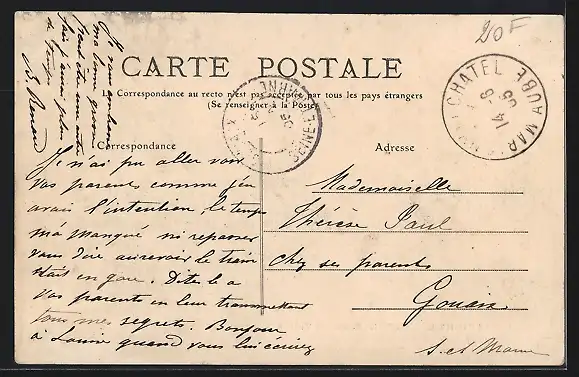 20F
CARTE POSTALE
La Correspondance au recto n'est pas acceptée par tous les pays étrangers
(Se renseigner à la Poste)
Correspondance
Adresse
Je n'ai pu aller voir
vos parents comme j'en
avais l'intention, le temps
m'a manqué ni repasser
vous dire au revoir le train
était en gare. Dites le a
vos parents en leur transmettant
tous mes regrets. Bonjour
à Louise quand vous lui écrirez
Mademoiselle
Thérèse Paul
chez ses parents
Gouaix
S. et Marne
Je vous
ma bonne
Peut être
B. Renard
CHATEL
AUBE
MAR
14
9
05
SEINE